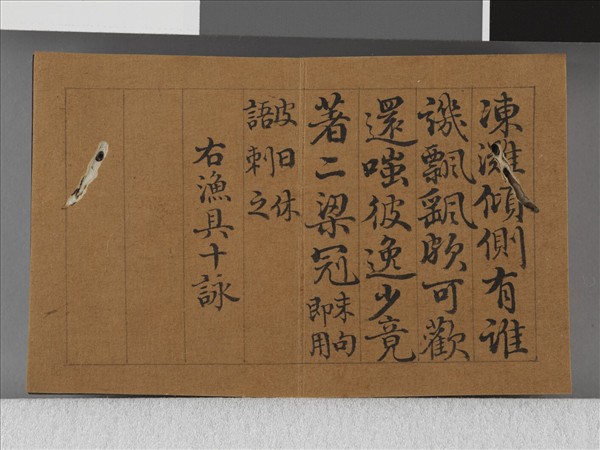 凍灘傾側有誰
譏飄颻頗可歡
還嗤彼逸少竟
著二梁冠末句即用
皮日休語刺之
右漁具十詠